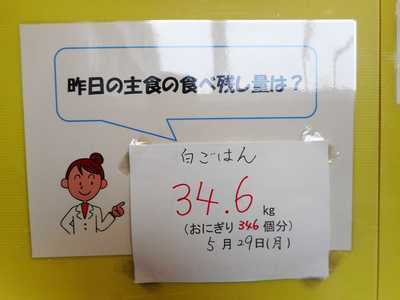 昨日の主食の食べ残し量は？
白ごはん
34.6 kg
(おにぎり 346 個分)
5月29日(月)